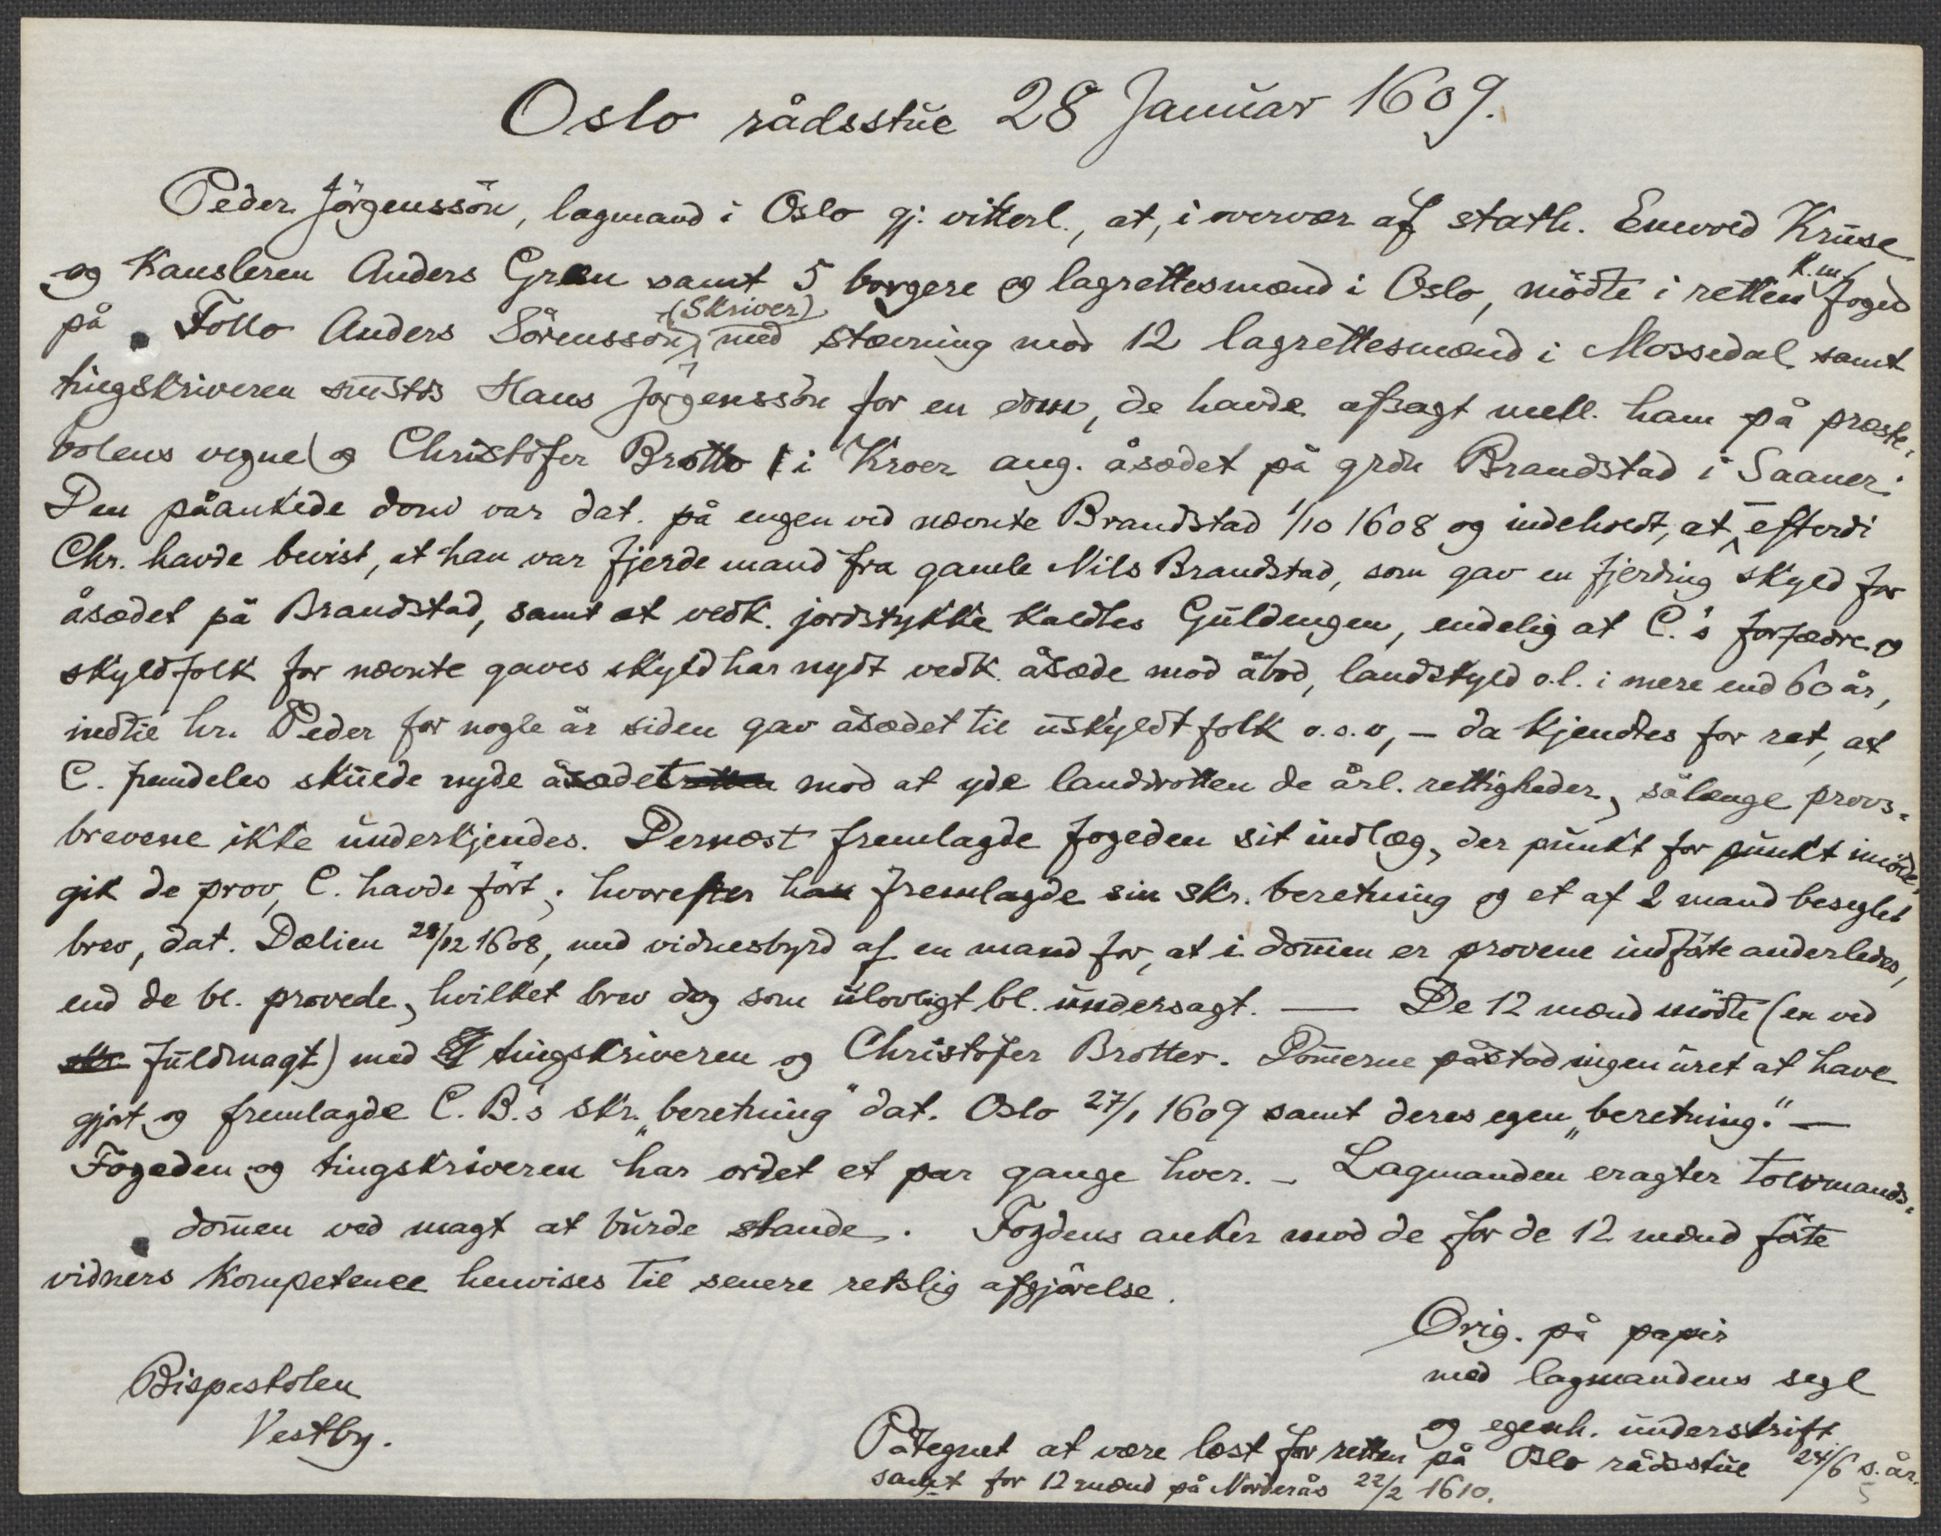 Oslo rådsstue 28 Januar 1609.
Peder Jörgenssön, lagmand i Oslo gj. vitterl., at, i overvær af stath. Enwold Kruse
og Kansleren Anders Green samt 5 borgere og lagrettesmænd i Oslo, mödte i retten K.m. foged
på Follo Anders Sörenssön (Skriver) med stævning mod 12 lagrettesmænd i Mossedal samt
tingskriveren sustds Hans Jörgenssön for en dom, de havde afsagt mell. ham på præste-
bolens vegne og Christofer Brotto i Kroer ang. åsædet på grdn Brandstad i Saaner.
Den påankede dom var dat. på engen ved nævnte Brandstad 1/10 1608 og indeholdt, at, efterdi
Chr. havde bevist, at han var fjerde mand fra gamle Nils Brandstad, som gav en fjerding skyld for
åsædet på Brandstad, samt at vedk. jordstykke kaldtes Guldengen, endelig at C.'s forfædre og
skyldfolk for nævnte gaves skyld har nydt vedk. åsæde mod åbod, landskyld o.l. i mere end 60 år,
indtil hr. Peder for nogle år siden gav åsædet til uskyldt folk o.s.v, – da kjendtes for ret, at
C. fremdeles skulde nyde åsædet mod at yde landdrotten de årl. rettigheder, sålænge provs-
brevene ikke underkjendes. Dernæst fremlagde fogeden sit indlæg, der punkt for punkt imöde-
gik de prov, C. havde fört; hvorefter han fremlagde sin skr. beretning og et af 2 mand beseglet
brev, dat. Dælien 28/12 1608, med vidnesbyrd af en mand for, at i dom̄en er provene indförte anderledes,
end de bl. provede, hvilket brev dog som ulovligt bl. undersagt. — De 12 mænd mödte (en ved
fuldmagt) med tingskriveren og Christofer Brotter. Dom̄erne påstod ingen uret at have
gjort og fremlagde C. B.'s skr. „beretning" dat. Oslo 27/1 1609 samt deres egen „beretning". —
Fogeden og tingskriveren har ordet et par gange hver. – Lagmanden eragter tolvmands-
dom̄en ved magt at burde stande. Fogdens anker mod de for de 12 mænd förte
vidners kompetence henvises til senere retslig afgjörelse.
Orig. på papir
med lagmandens segl
og egenh. underskrift
Bispestolen
Vestby.
Påtegnet at være læst for retten på Oslo rådsstue 24/6 s. år.
samt for 12 mænd på Norderås 22/2 1610.